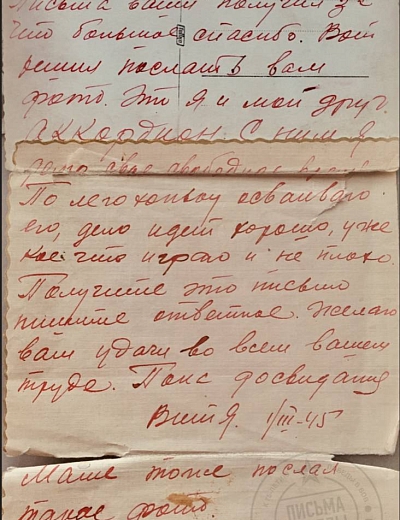 Письма ваши получил за
что большое спасибо. Вот
решил послать вам
фото. Это я и мой друг
аккордион. С ним я
свое свободное время
По легохоньку осваиваю
его, дело идет хорошо, уже
кое что играю и не плохо.
Получите это письмо
пишите ответное. Желаю
вам удачи во всем вашем
труде. Пока досвидания
Витя. 1/III-45
Маше тоже послал
такое фото.
ПИСЬМА